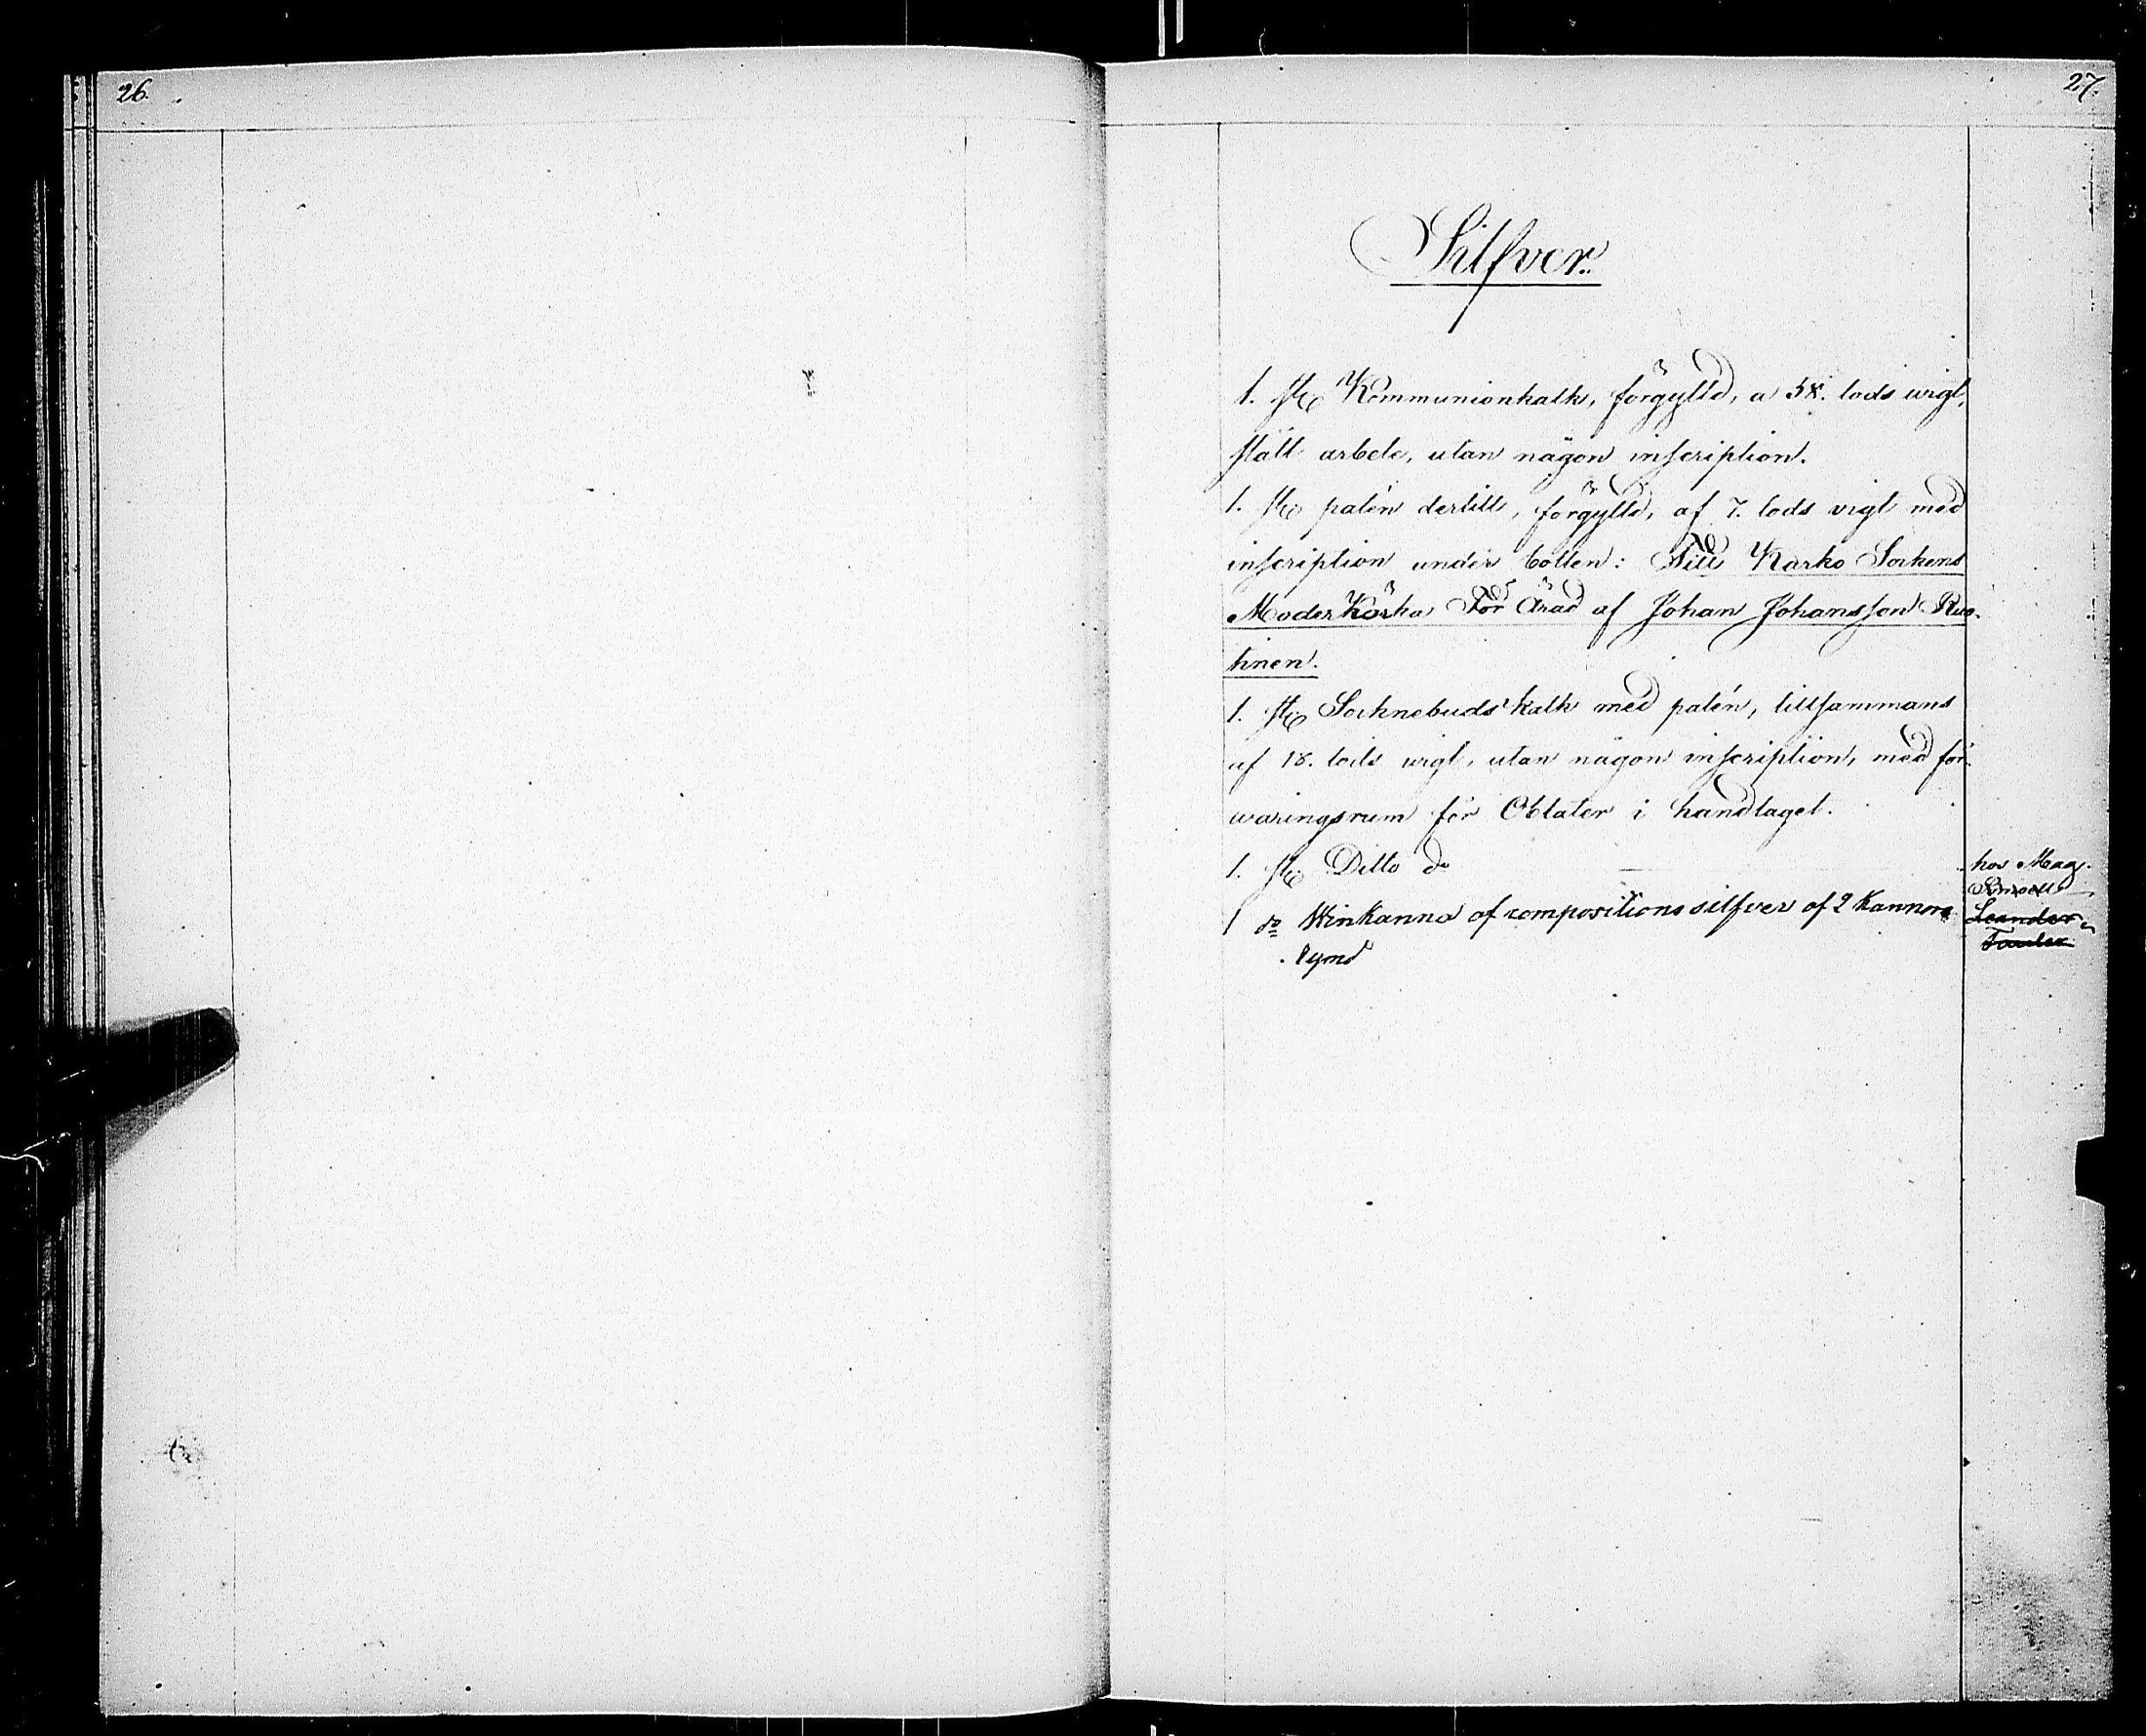 26.
27.
Silfver.
1. st. Kommunionkalk, förgylld, a 58. lods wigt,
slätt arbete, utan någon inscription.
1. st. patén dertill, förgylld, af 7. lods vigt med
inscription under botten: Till Karko Sockens
Moder Körka För Ärad af Johan Johansson Kuo-
hnen.
1. st. Socknebuds kalk med patén, tillsammans
af 18. lods wigt, utan någon inscription, med för-
waringsrum för Oblater i handtaget.
1. st. Ditto do
hos Mag.
1 do Winkanna af compositions silfver af 2 Kannors
Leander
Rymd